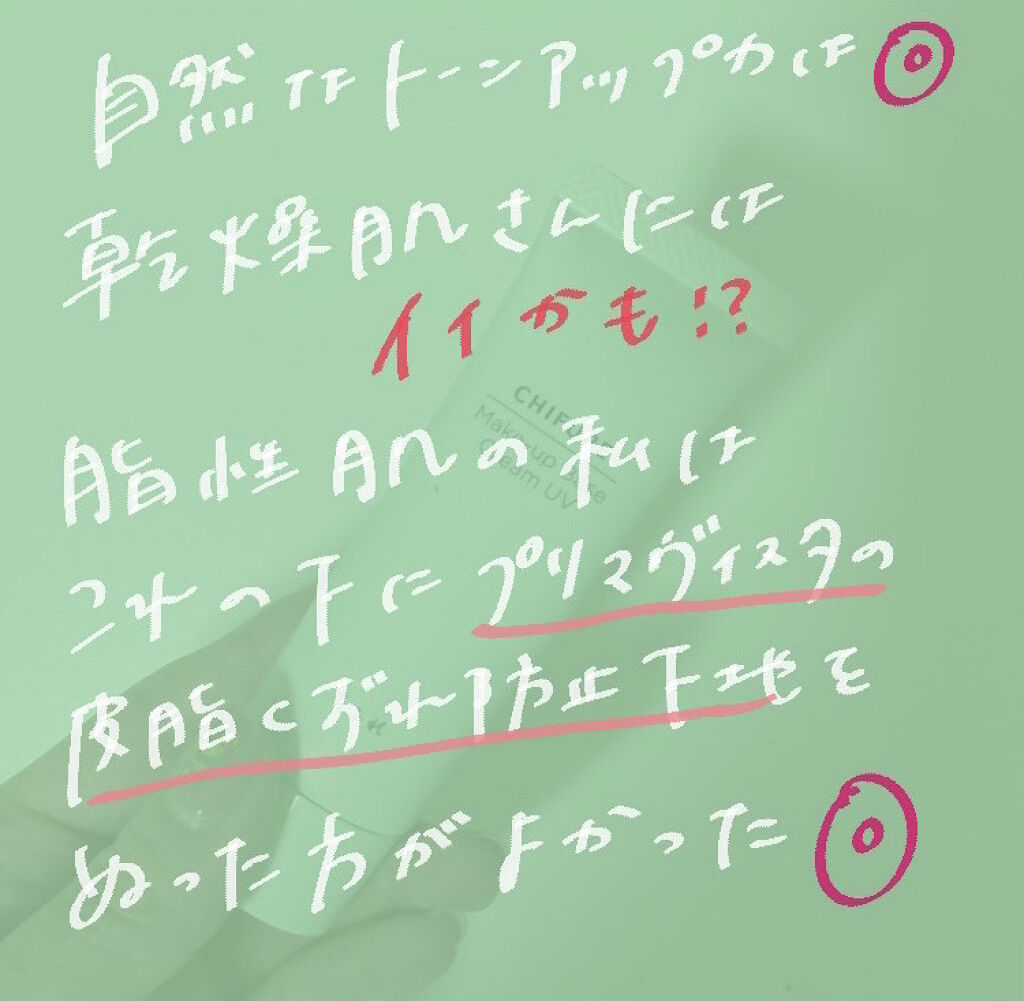 自然なトーンアップ力は◎
乾燥肌さんには
イイかも!?
CHIFURE
Make-up Base
Cream UV
脂性肌の私は
これの下にプリマヴィスタの
皮脂くずれ防止下地を
ぬった方がよかった◎